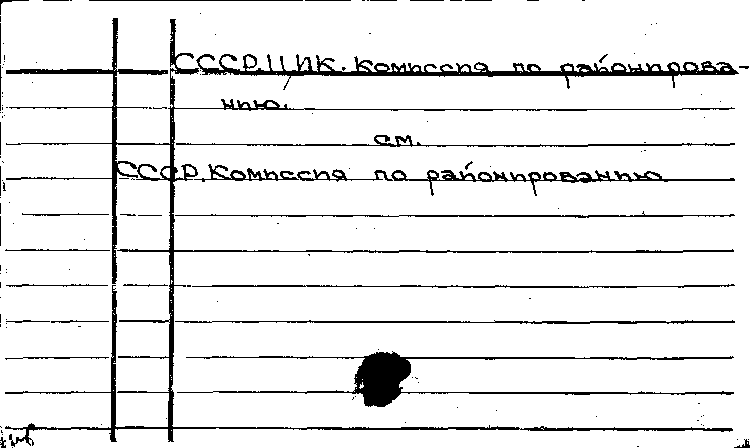 СССР.ЦИК. Комиссия по районирова-
нию.
см.
СССР. Комиссия по районированию